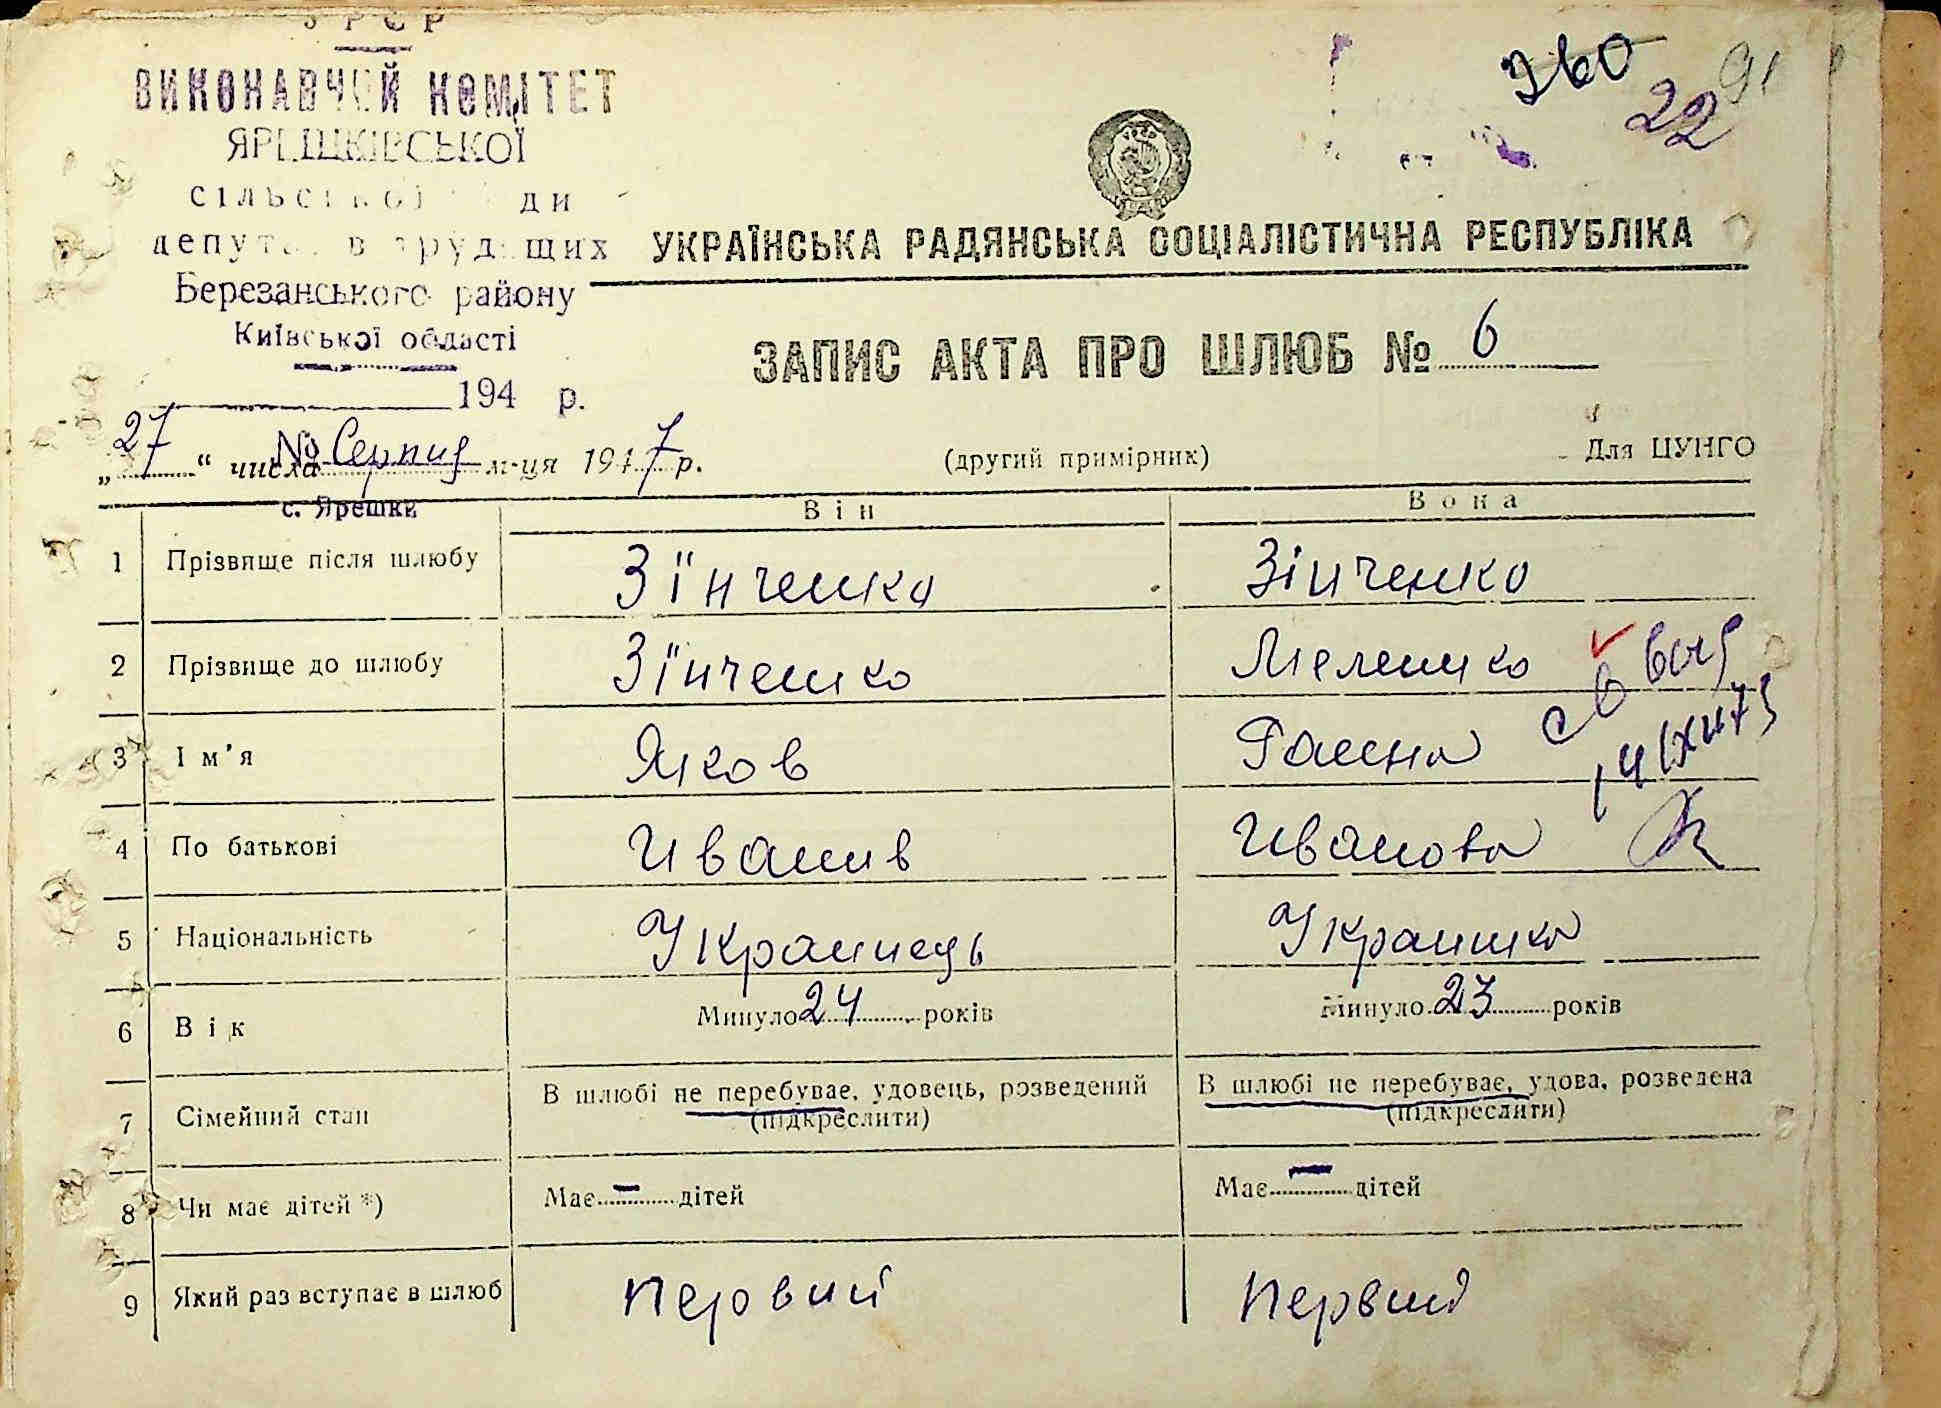 УРСР
ВИКОНАВЧИЙ КОМІТЕТ
ЯРЕШКІВСЬКОЇ
сільської ради
депутатів трудящих
Березанського району
Київської області
194 р.
№
с. Ярешки
360
22
91
УКРАЇНСЬКА РАДЯНСЬКА СОЦІАЛІСТИЧНА РЕСПУБЛІКА
ЗАПИС АКТА ПРО ШЛЮБ № 6
„27“ числа Серпня м-ця 1947 р.
(другий примірник)
Для ЦУНГО
Він Вона
1 Прізвище після шлюбу Зїнченко Зінченко
2 Прізвище до шлюбу Зїнченко Меленко
3 Ім'я Яков Ганна
4 По батькові Иванив Иванова
5 Національність Украинець Украинка
6 Вік Минуло 24 років Минуло 23 років
7 Сімейний стан В шлюбі не перебуває, удовець, розведений В шлюбі не перебуває, удова, розведена
(підкреслити) (підкреслити)
8 Чи має дітей *) Має – дітей Має – дітей
9 Який раз вступає в шлюб Первий Первий